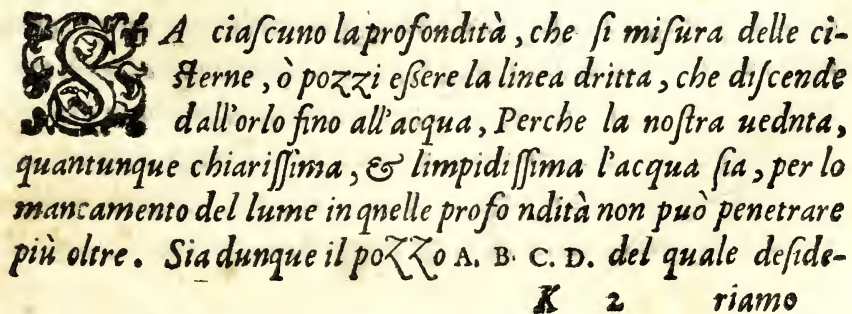 SA ciaſcuno la profondità, che ſi miſura delle ci-
ſterne, ò pozzi eſsere la linea dritta, che diſcende
dall'orlo fino all'acqua, Perche la noſtra uednta,
quantunque chiariſſima, & limpidiſſima l'acqua ſia, per lo
mancamento del lume in qnelle profo ndità non può penetrare
più oltre. Sia dunque il pozzo A. B. C. D. del quale deſide-
K 2 riamo